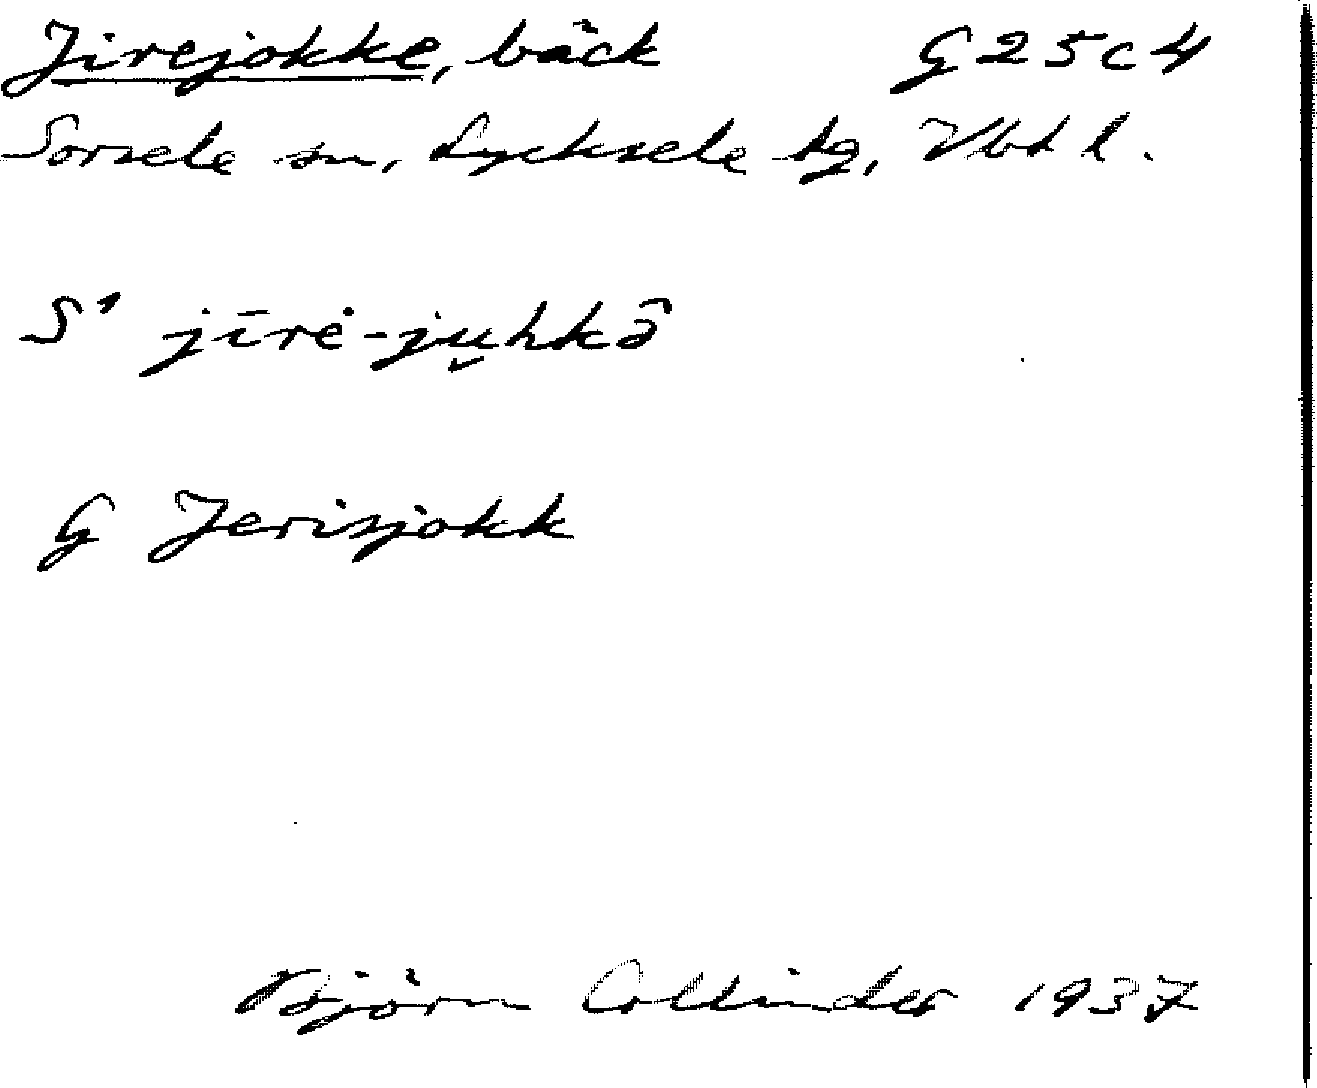 Jirejokke, bäck G25c4
Sorsele sn, Lycksele tg, Vbtl.
S' jīrė-ju̬hkə̂
G Jerisjokk
Björn Collinder 1937